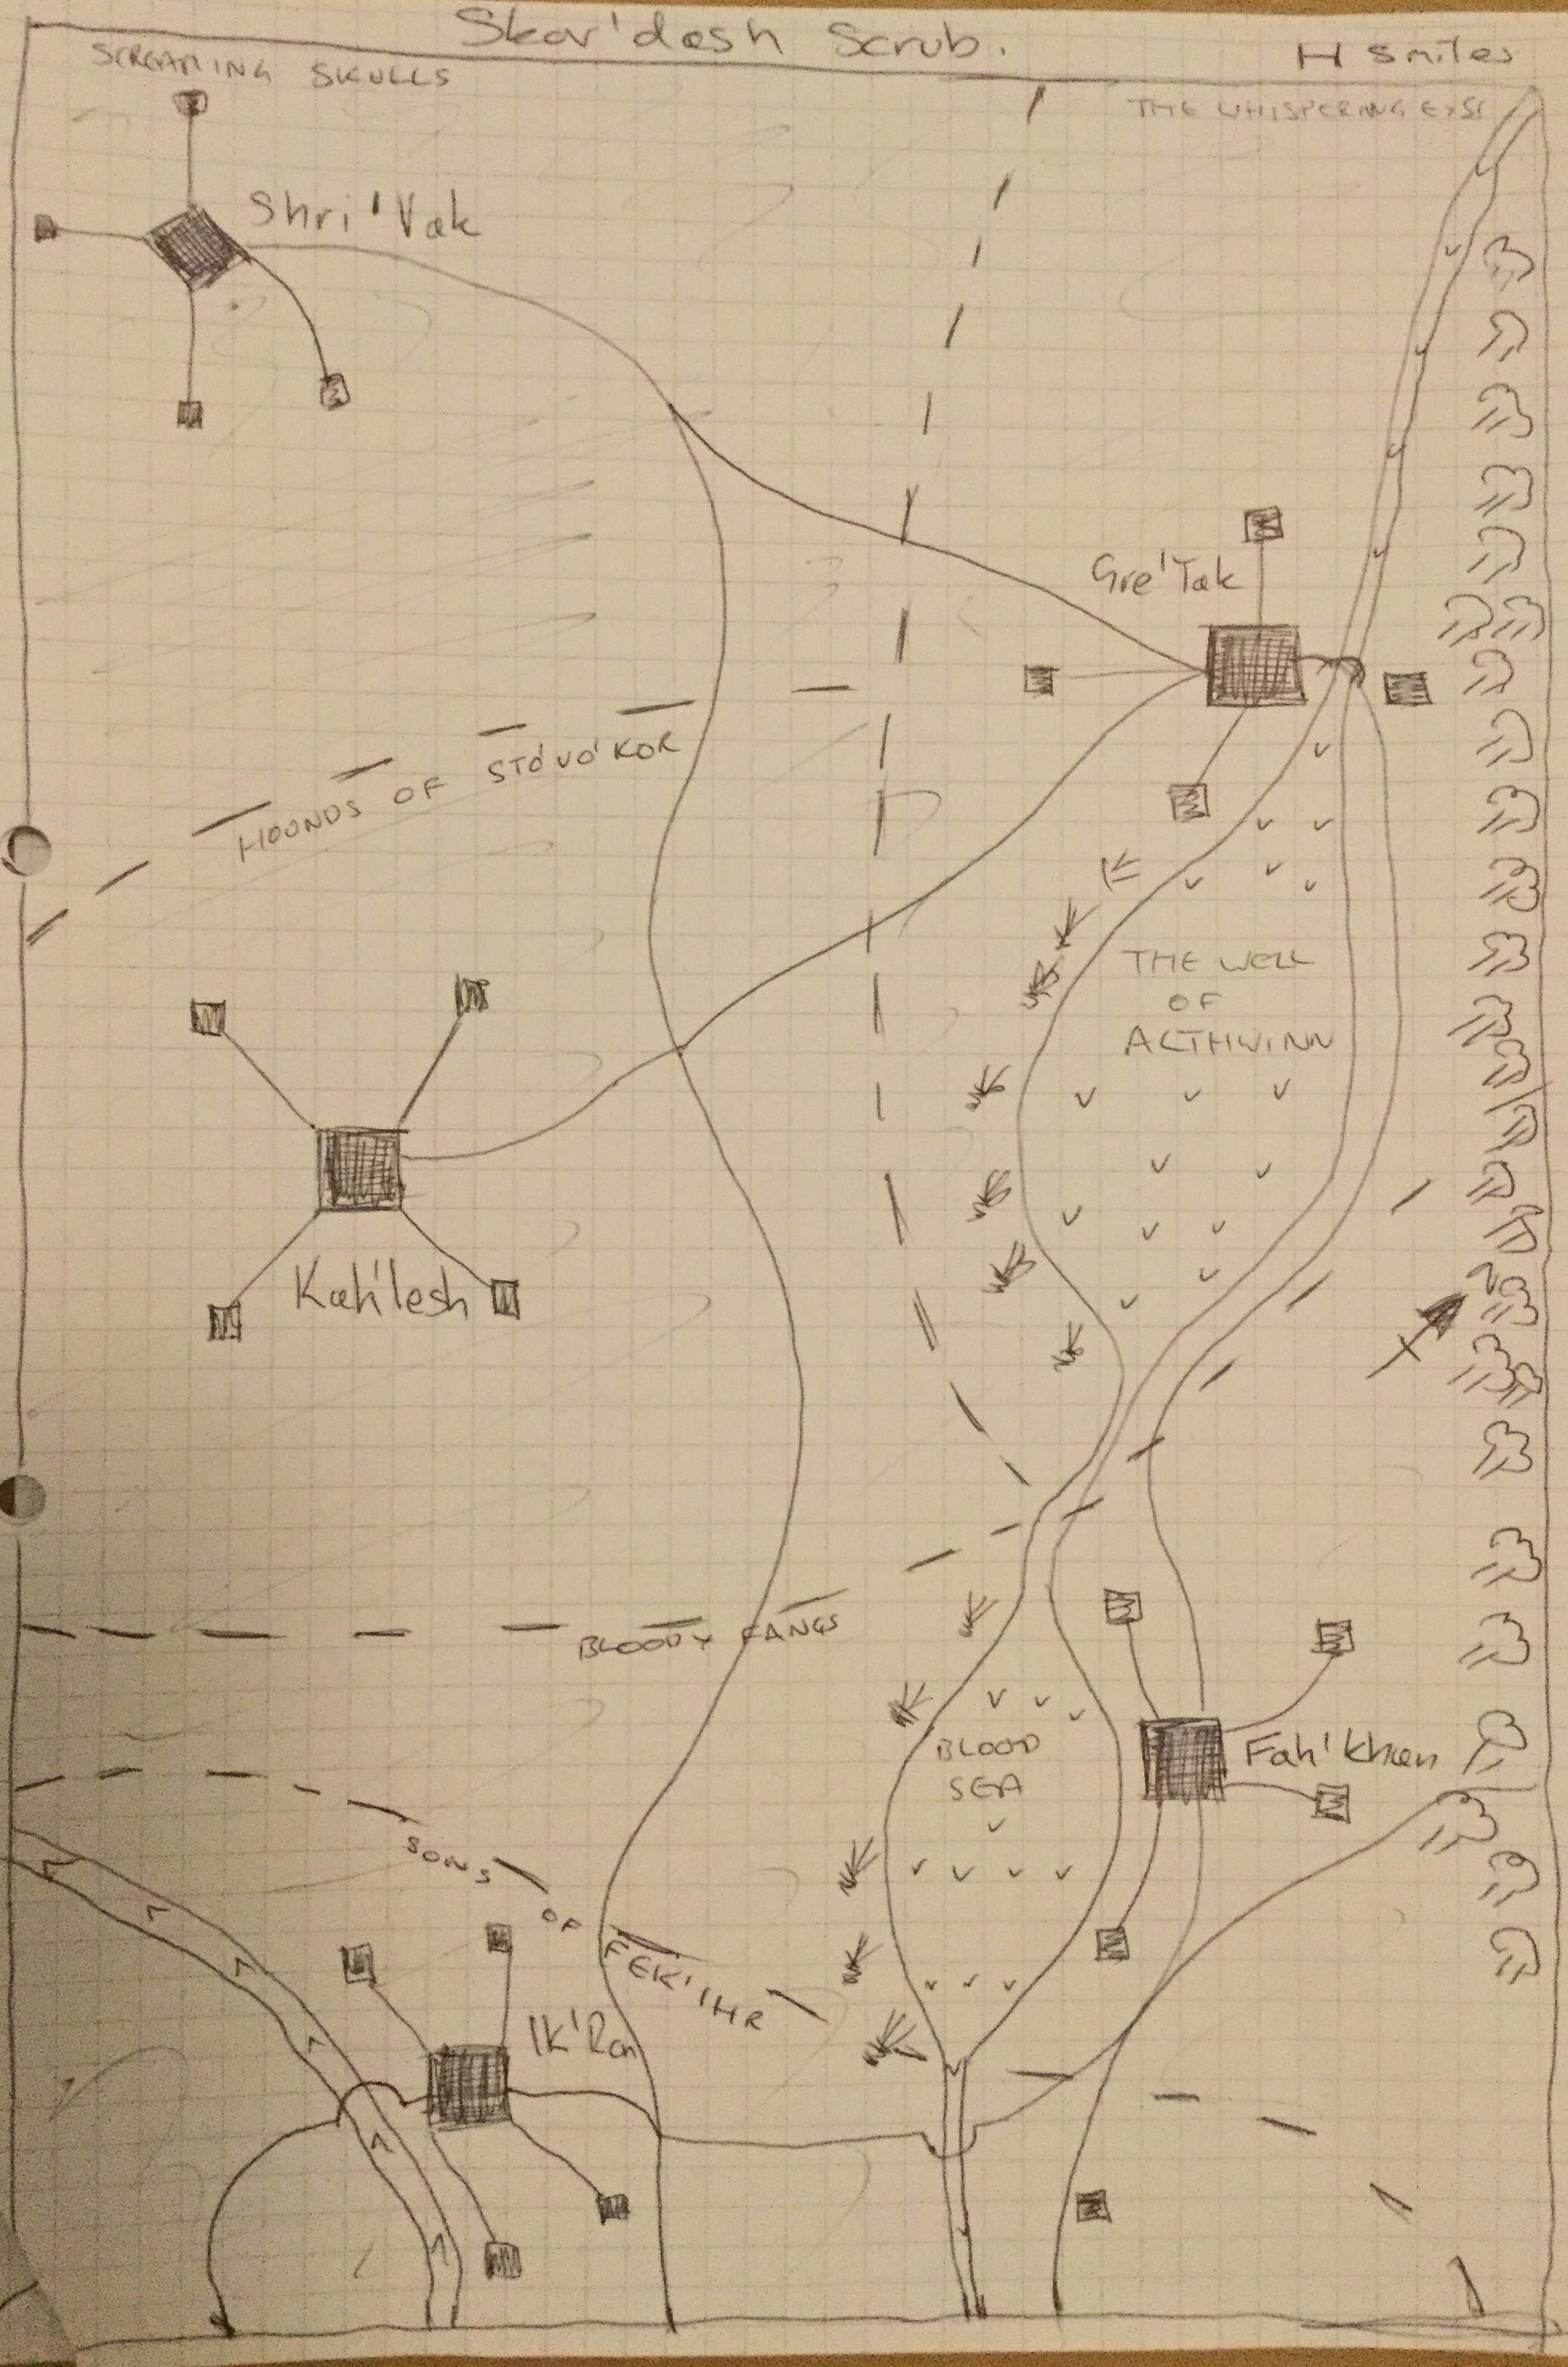 Skar'dash Scrub.
H 5miles
SCREAMING SKULLS
THE WHISPERING EYSE
Shri'Vak
Gre'Tak
HOUNDS OF STO'VO'KOR
THE WELL
OF
ALTHWINN
Kah'lesh
N
BLOODY FANGS
BLOOD
SEA
Fah'khan
SONS OF FEK'IHR
Ik'Ran